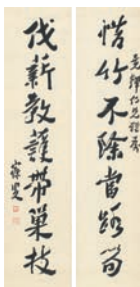 惜竹不除當路笋
伐薪教護帶巢枝